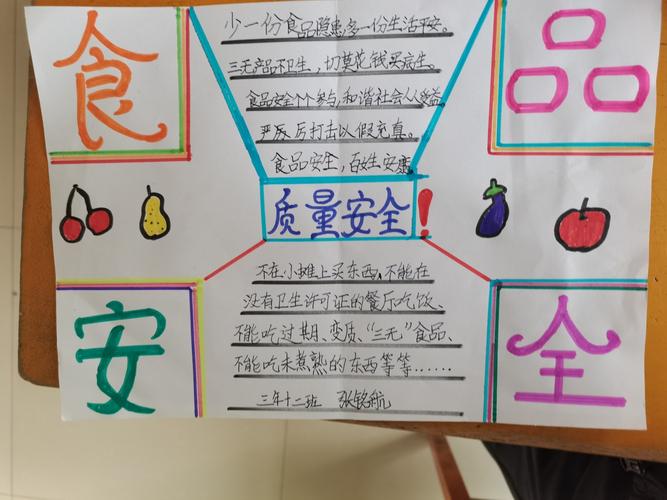 食
品
少一份食品隐患,多一份生活平安。
三无产品不卫生,切莫花钱买病生。
食品安全个个参与,和谐社会人人受益
严厉打击以假充真。
食品安全,百姓安康
质量安全!
不在小摊上买东西,不能在
没有卫生许可证的餐厅吃饭、
不能吃过期、变质、“三无”食品、
不能吃未煮熟的东西等等……
三年十二班 张铭航
安
全